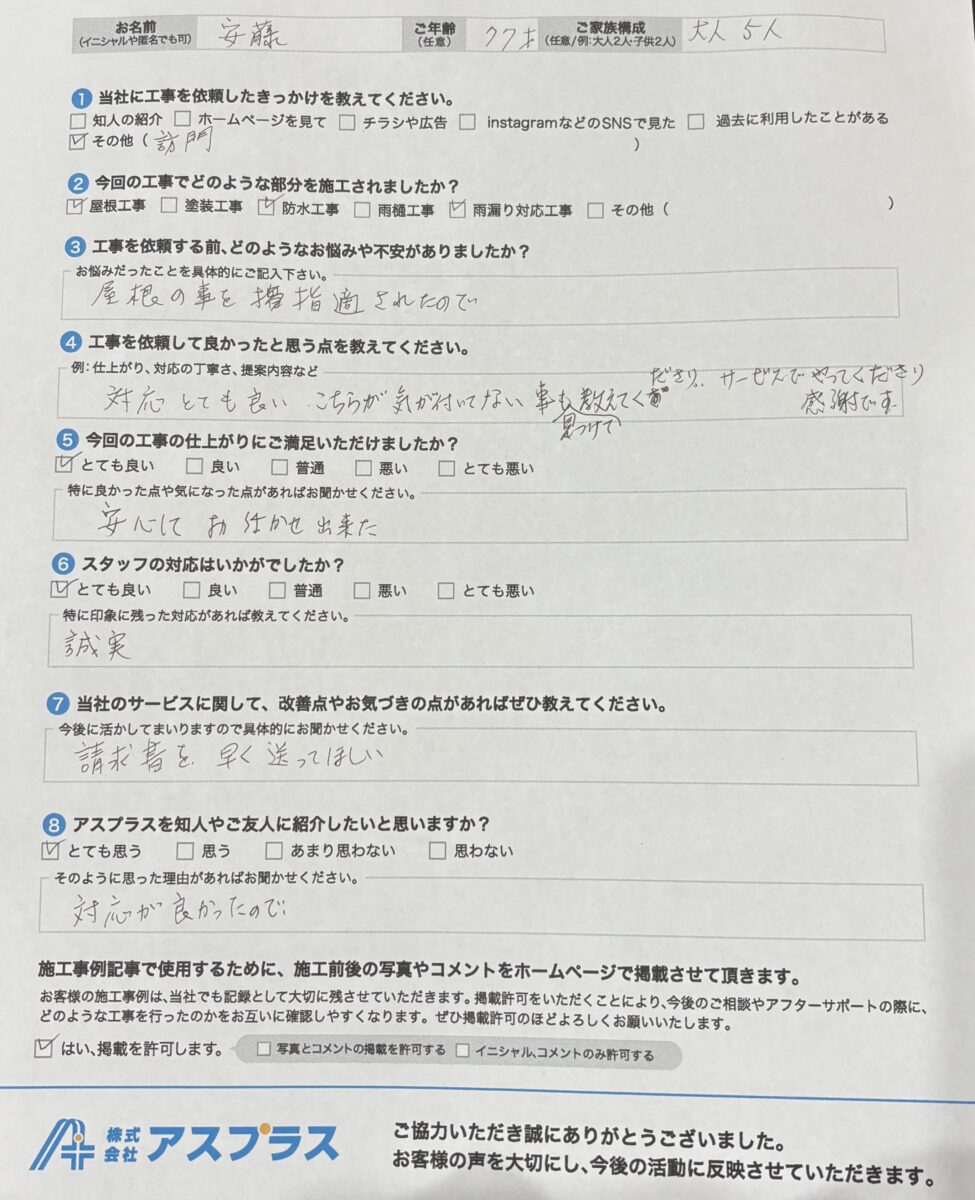 お名前 (イニシャルや匿名でも可) 安藤 ご年齢 (任意) 77才 ご家族構成 (任意/例:大人2人・子供2人) 大人 5人
1 当社に工事を依頼したきっかけを教えてください。
□ 知人の紹介 □ ホームページを見て □ チラシや広告 □ instagramなどのSNSで見た □ 過去に利用したことがある
☑ その他 ( 訪門 )
2 今回の工事でどのような部分を施工されましたか?
☑ 屋根工事 □ 塗装工事 ☑ 防水工事 □ 雨樋工事 ☑ 雨漏り対応工事 □ その他 ( )
3 工事を依頼する前、どのようなお悩みや不安がありましたか?
お悩みだったことを具体的にご記入下さい。
屋根の事を 指適されたので
4 工事を依頼して良かったと思う点を教えてください。
例:仕上がり、対応の丁寧さ、提案内容など
対応 とても良い. こちらが気が付いてない 事も 見つけて 教えてくださり. サービスで やってくださり 感謝です.
5 今回の工事の仕上がりにご満足いただけましたか?
☑ とても良い □ 良い □ 普通 □ 悪い □ とても悪い
特に良かった点や気になった点があればお聞かせください。
安心して お任かせ出来た
6 スタッフの対応はいかがでしたか?
☑ とても良い □ 良い □ 普通 □ 悪い □ とても悪い
特に印象に残った対応があれば教えてください。
誠実
7 当社のサービスに関して、改善点やお気づきの点があればぜひ教えてください。
今後に活かしてまいりますので具体的にお聞かせください。
請求書を 早く 送ってほしい
8 アスプラスを知人やご友人に紹介したいと思いますか?
☑ とても思う □ 思う □ あまり思わない □ 思わない
そのように思った理由があればお聞かせください。
対応が良かったので
施工事例記事で使用するために、施工前後の写真やコメントをホームページで掲載させて頂きます。
お客様の施工事例は、当社でも記録として大切に残させていただきます。掲載許可をいただくことにより、今後のご相談やアフターサポートの際に、
どのような工事を行ったのかをお互いに確認しやすくなります。ぜひ掲載許可のほどよろしくお願いいたします。
☑ はい、掲載を許可します。 □ 写真とコメントの掲載を許可する □ イニシャル、コメントのみ許可する
株式会社 アスプラス
ご協力いただき誠にありがとうございました。
お客様の声を大切にし、今後の活動に反映させていただきます。